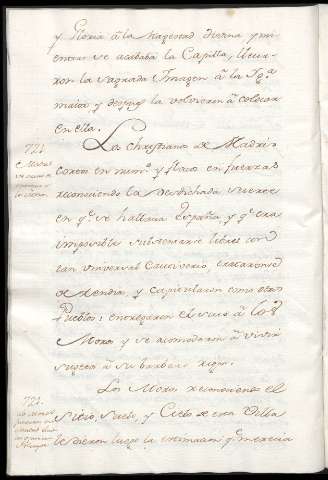 y Gloria â la Magestad Divina y mi
entras se acababa la Capilla, lleva-
ron la Sagrada Imagen â la Ygª
maior y despues la volvieron â colocar
en ella.
721.
Los Christianos de Madrid
cortos en numº y flacos en fuerzas
reconociendo la desdichada suerte
en qe se hallava España y qe era
imposible substentarse libres con
tan universal Cautiverio, trataronse
de rendir, y capitularon como otros
Pueblos; entregaron el suio â los
Moros y se acomodaron â vivir
sugetos â su barbaro iugo.
722.
Los Moros reconociendo el
Sitio, Suelo, y Cielo de esta Villa
le dieron luego la estimacion qe merecia